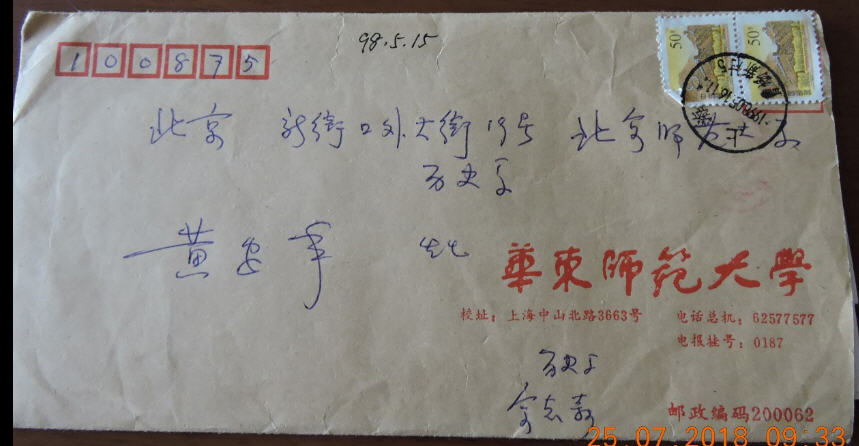 98.5.15
100875
50 50
上海
北京 新街口外大街19号 北京师范大学
历史系
黄安年 先生
華東師範大學
校址: 上海中山北路3663号 电话总机: 62577577
电报挂号: 0187
历史系
邮政编码200062
25.07.2018 09:33